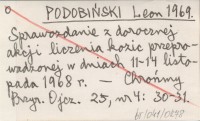 PODOBIŃSKI Leon 1969.
Sprawozdanie z dorocznej
akcji liczenia kozic przepro-
wadzonej w dniach 11-14 listo-
pada 1968 r. — Chrońmy
Przyr. Ojcz. 25, nr 4: 30-31.